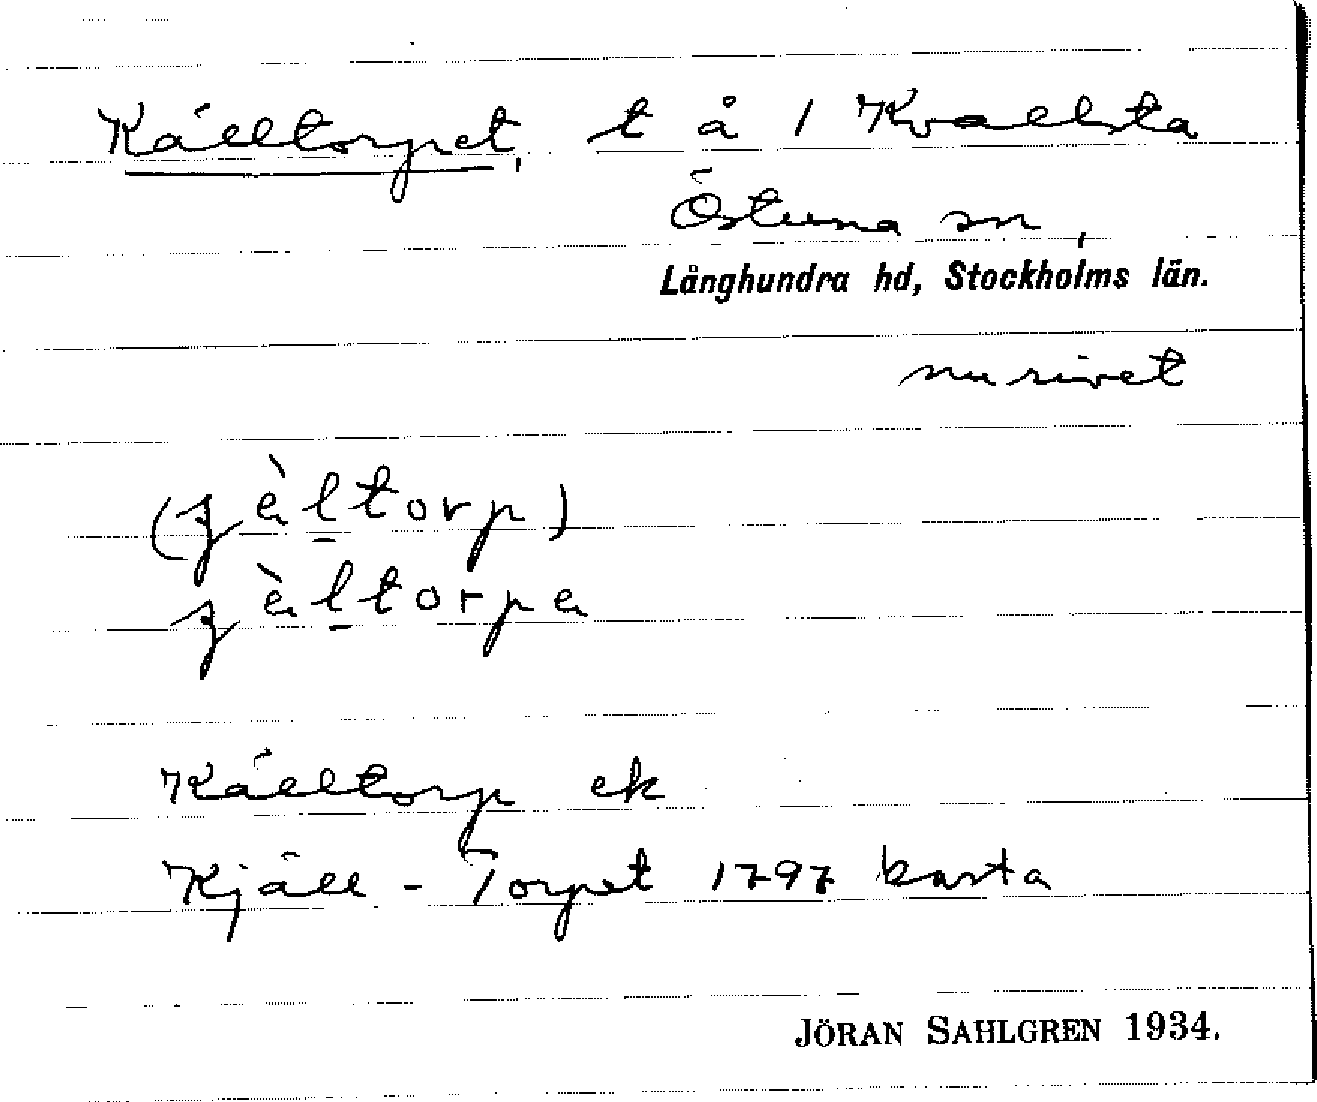 Källtorpet, t å 1 Kvallsta
Östuna sn,
Långhundra hd, Stockholms län.
nu rivet
(ʒὲl̠torp)
ʒὲl̠torpə
Källtorp ek
Kjäll-Torpet 1797 karta
JÖRAN SAHLGREN 1934.